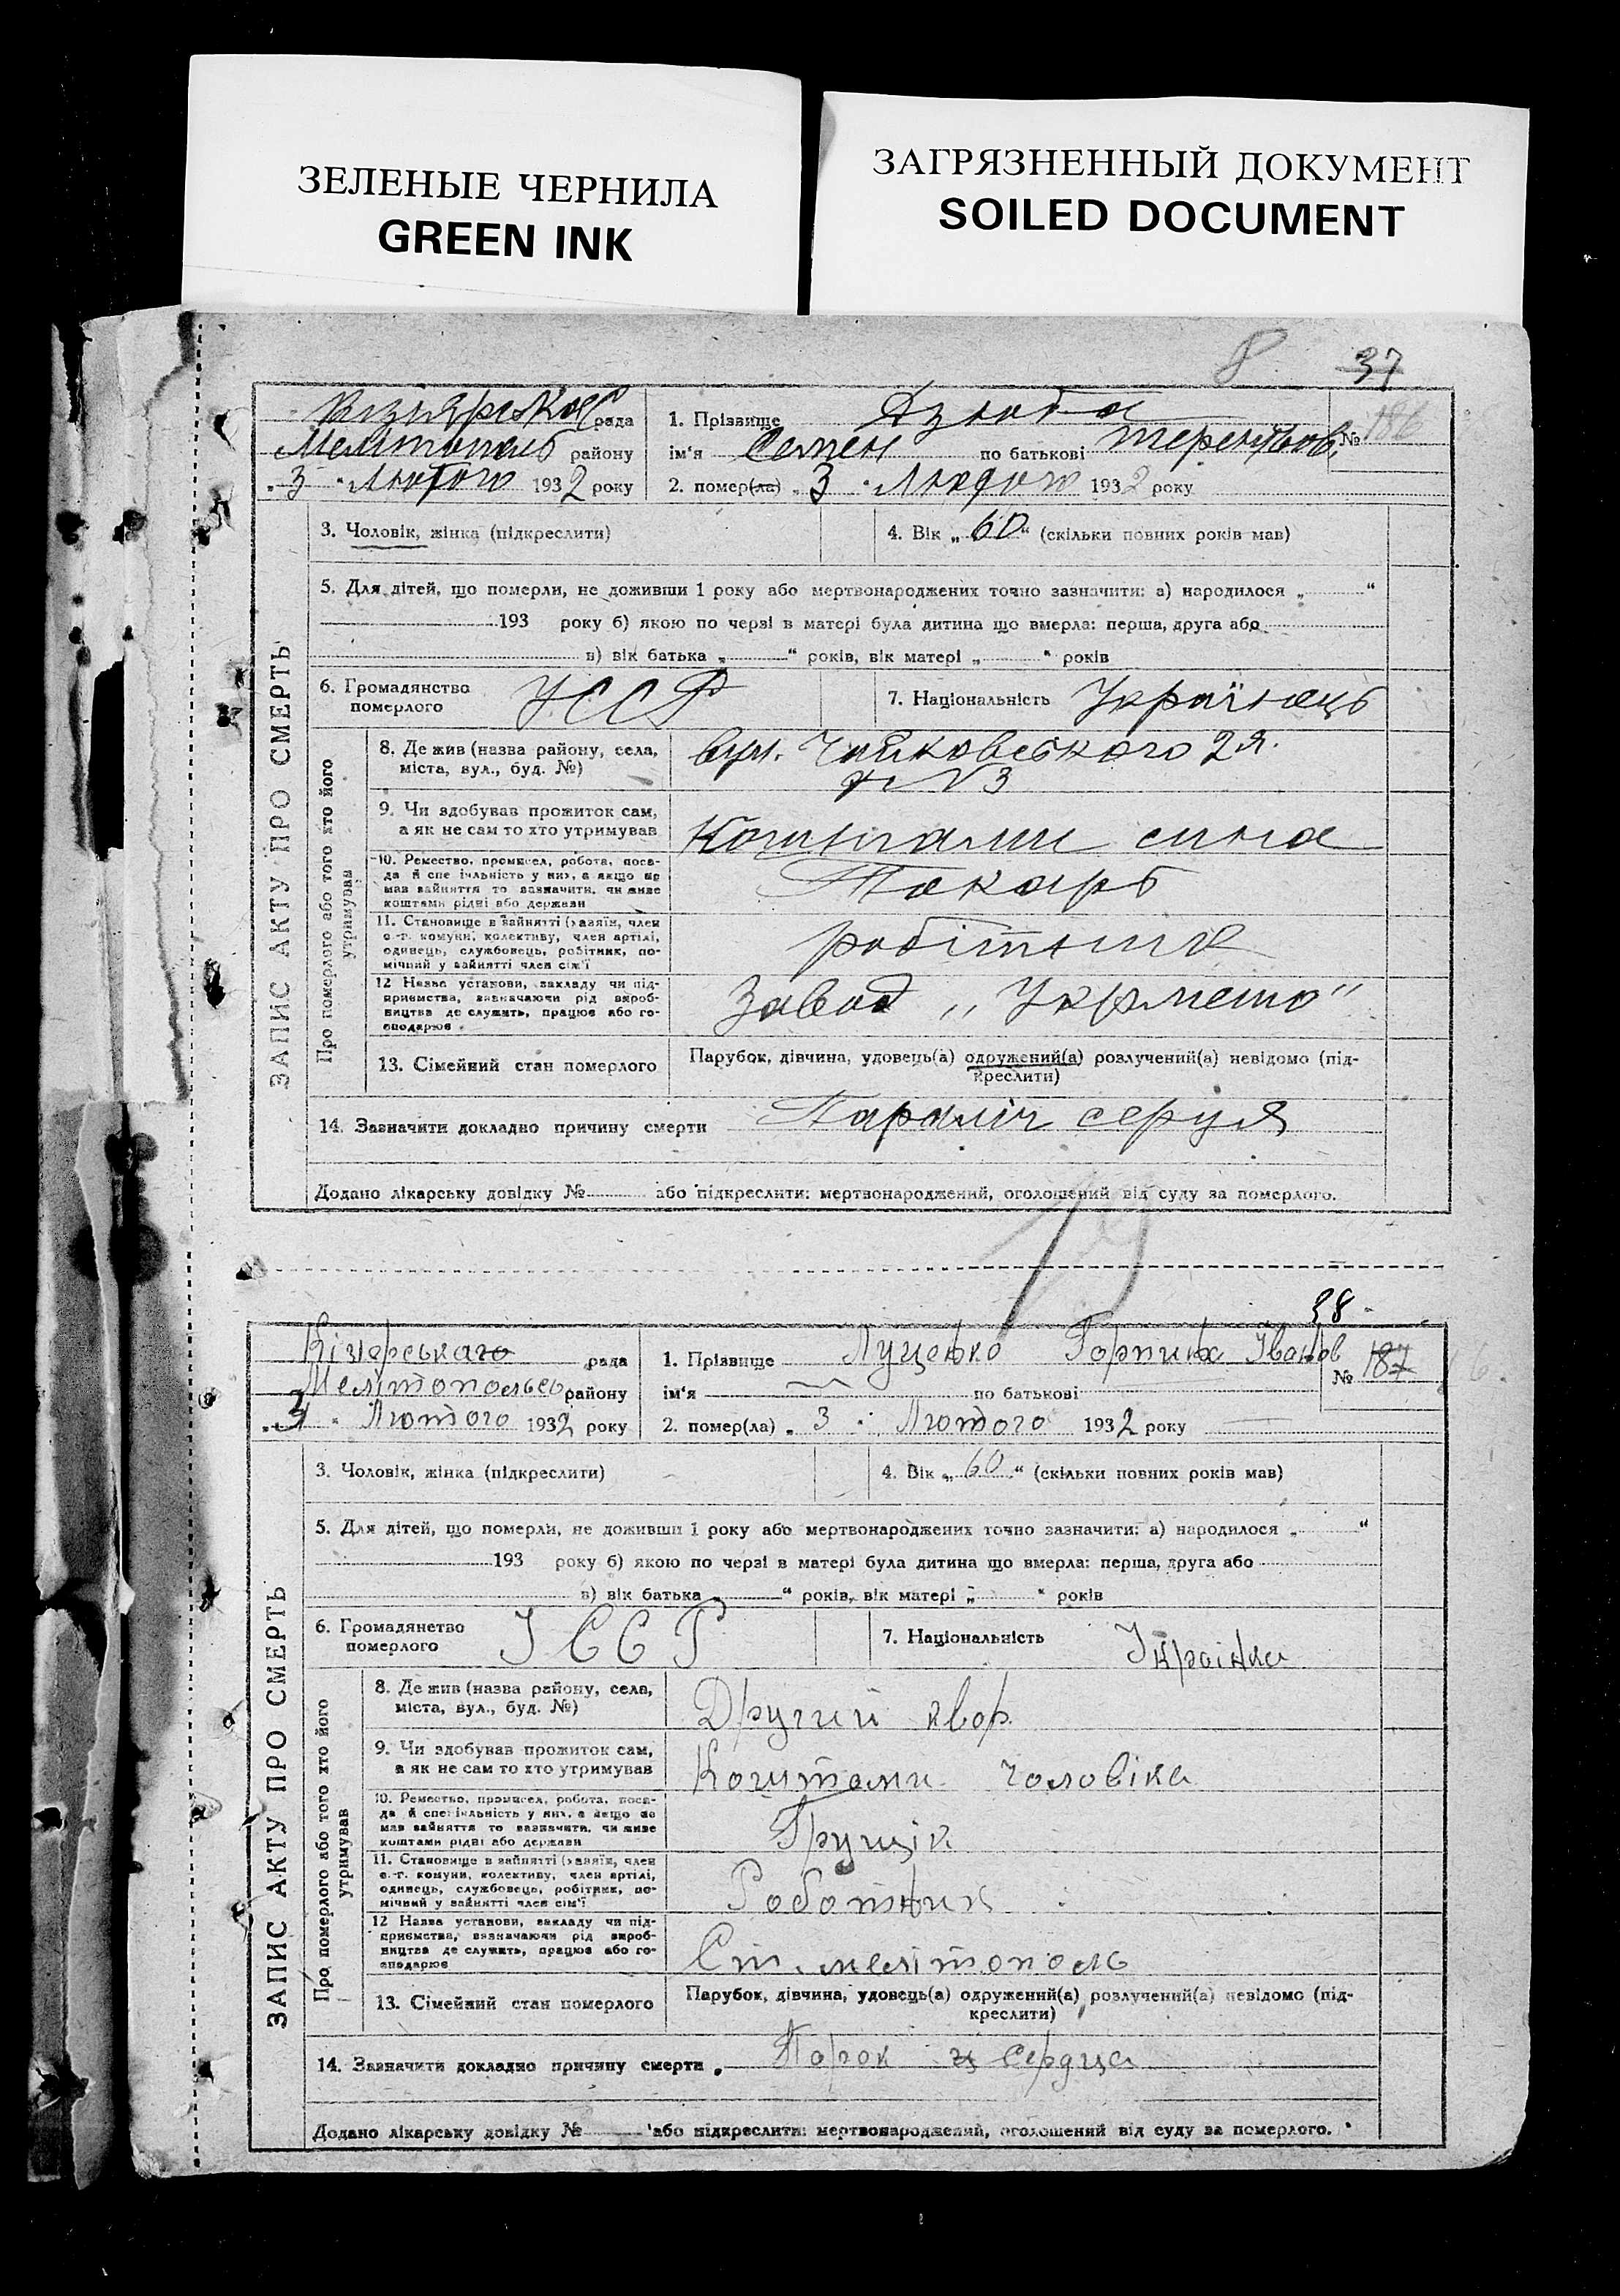 ЗЕЛЕНЫЕ ЧЕРНИЛА
GREEN INK
ЗАГРЯЗНЕННЫЙ ДОКУМЕНТ
SOILED DOCUMENT
8 37
рада
1. Прізвище Дзюба
№ 186
Мелітополь району
ім'я Семен по батькові Терентьов.
„3" Лютого 1932 року
2. помер(ла) „3" Лютого 1932 року
ЗАПИС АКТУ ПРО СМЕРТЬ
3. Чоловік, жінка (підкреслити)
4. Вік „60" (скільки повних років мав)
5. Для дітей, що померли, не доживши 1 року або мертвонароджених точно зазначити: а) народилося „ "
193 року б) якою по черзі в матері була дитина що вмерла: перша, друга або
в) вік батька „ " років, вік матері „ " років
6. Громадянство померлого УССР
7. Національність Українець
Про померлого або того хто його утримував
8. Де жив (назва району, села, міста, вул., буд. №)
вул. Чайковського 2я.
№ 3
9. Чи здобував прожиток сам, а як не сам то хто утримував
Коштами сина
10. Ремество, промисел, робота, посада й спеціяльність у них, а якщо не мав зайняття то зазначити, чи живе коштами рідні або держави
Токарь
11. Становище в зайнятті (хазяїн, член с.-г. комуни, колективу, член артілі, одинець, службовець, робітник, помічний у зайнятті член сім'ї
робітник
12 Назва установи, закладу чи підприємства, зазначаючи рід виробництва де служить, працює або господарює
Завод
13. Сімейний стан померлого
Парубок, дівчина, удовець(а) одружений(а) розлучений(а) невідомо (підкреслити)
14. Зазначити докладно причину смерти Параліч серця
Додано лікарську довідку № або підкреслити: мертвонароджений, оголошений від суду за померлого.
19
38
Кізіярського рада
1. Прізвище Луценко Горпина Іванов
№ 187
Мелітопольсь району
ім'я по батькові
„3" Лютого 1932 року
2. помер(ла) „3" Лютого 1932 року
ЗАПИС АКТУ ПРО СМЕРТЬ
3. Чоловік, жінка (підкреслити)
4. Вік „60" (скільки повних років мав)
5. Для дітей, що померли, не доживши 1 року або мертвонароджених точно зазначити: а) народилося „ "
193 року б) якою по черзі в матері була дитина що вмерла: перша, друга або
в) вік батька „ " років, вік матері „ " років
6. Громадянство померлого УССР
7. Національність Українка
Про померлого або того хто його утримував
8. Де жив (назва району, села, міста, вул., буд. №)
Другий
9. Чи здобував прожиток сам, а як не сам то хто утримував
Коштами чоловіка
10. Ремество, промисел, робота, посада й спеціяльність у них, а якщо не мав зайняття то зазначити, чи живе коштами рідні або держави
Грущік
11. Становище в зайнятті (хазяїн, член с.-г. комуни, колективу, член артілі, одинець, службовець, робітник, помічний у зайнятті член сім'ї
Роботник
12 Назва установи, закладу чи підприємства, зазначаючи рід виробництва де служить, працює або господарює
Ст. мелітополь
13. Сімейний стан померлого
Парубок, дівчина, удовець(а) одружений(а) розлучений(а) невідомо (підкреслити)
14. Зазначити докладно причину смерти Порок сердца
Додано лікарську довідку № або підкреслити: мертвонароджений, оголошений від суду за померлого.